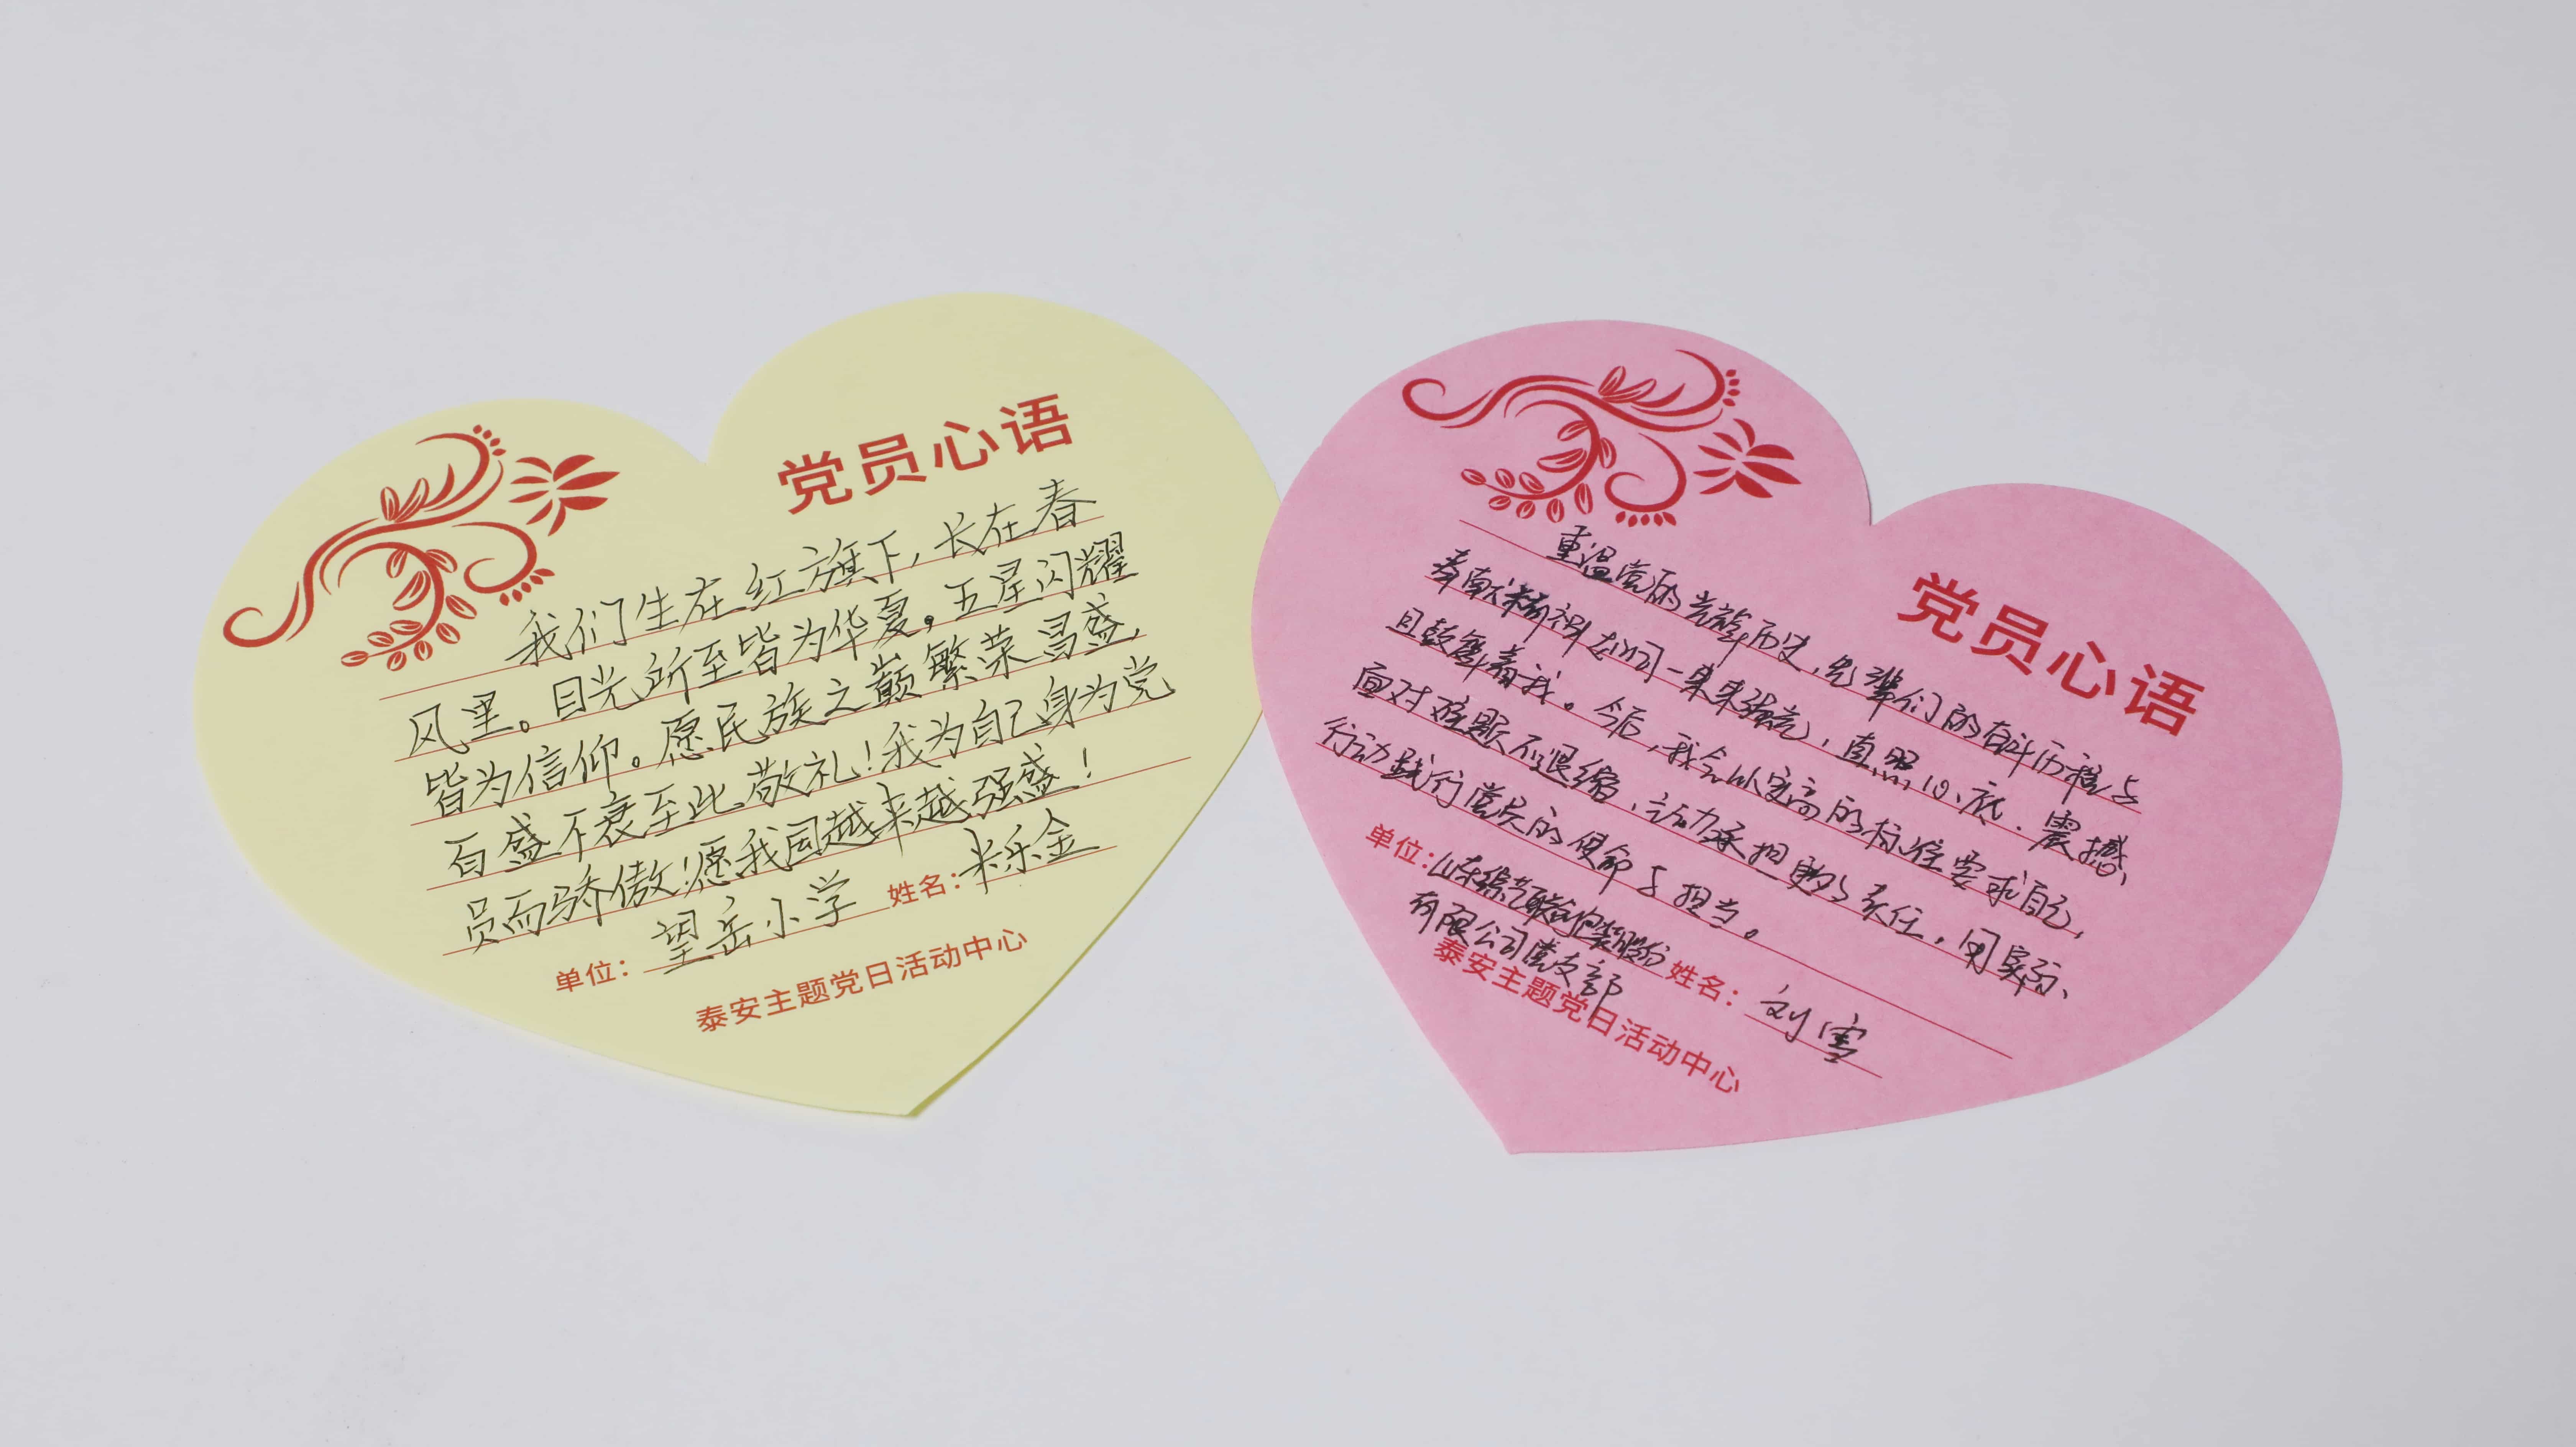 党员心语
我们生在红旗下，长在春
风里。目光所至皆为华夏。五星闪耀
皆为信仰。愿民族之巅繁荣昌盛，
百盛不衰至此敬礼！我为自己身为党
员而骄傲！愿我国越来越强盛！
单位：望岳小学 姓名：米乐金
泰安主题党日活动中心
党员心语
重温党的光辉历史，先辈们的奋斗历程与
奉献精神如同一束束强光，直照心底，震撼
且鼓舞着我。今后，我会以更高的标准要求自己，
面对难题不退缩，主动承担更多责任，用实际
行动践行党员的使命与担当。
单位：山东 股份
有限公司党支部
姓名：刘雪
泰安主题党日活动中心